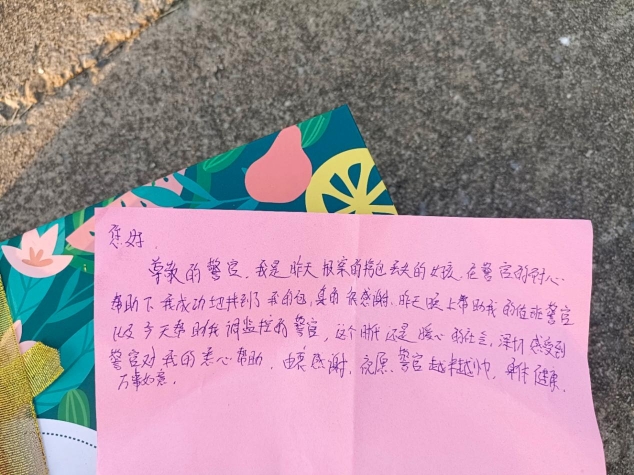 您好,
尊敬的警官，我是昨天报案的挎包丢失的女孩，在警官的耐心
帮助下我成功地找到了我的包，真的很感谢，昨天晚上帮助我的值班警官
以及今天帮助我调监控的警官，这个时代还是暖心的社会，深切感受到
警官对我的悉心帮助，由衷感谢，祝愿警官越来越帅，身体健康，
万事如意。